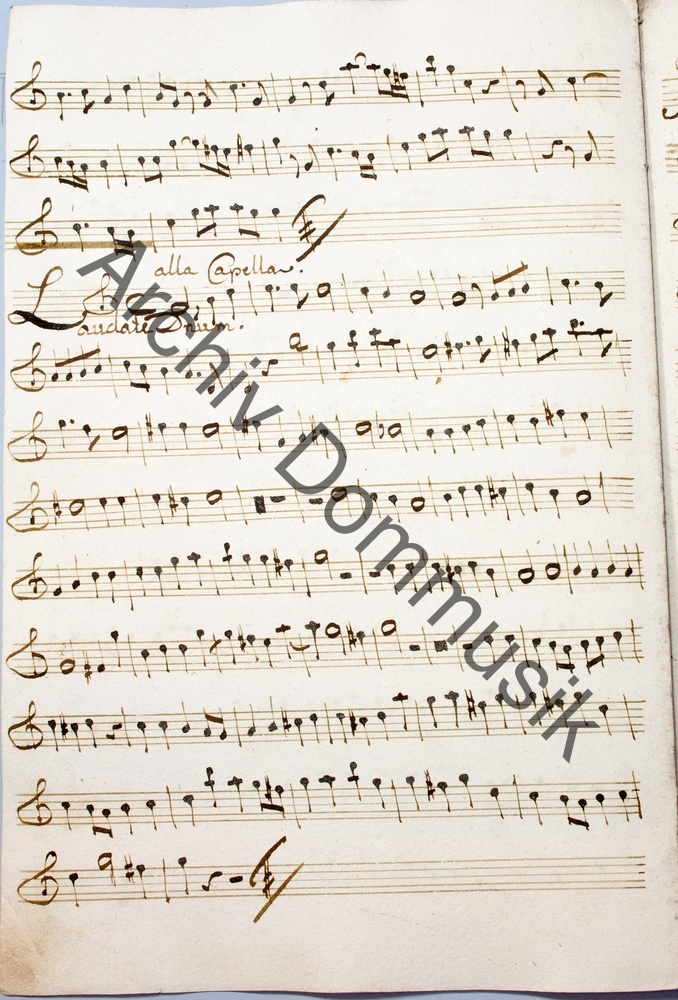 alla Capella.
Laudate Dnum.
Archiv Dommusik